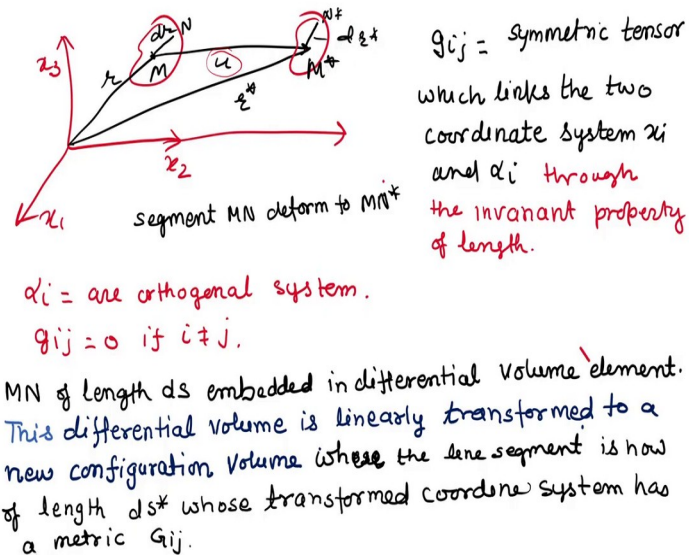 x3
r
dr N
M
u
N*
dr*
M*
r*
x2
x1
segment MN deform to MN*
gij = symmetric tensor
which links the two
coordinate system xi
and αi through
the invariant property
of length.
αi = are orthogonal system.
gij = 0 if i ≠ j.
MN of length ds embedded in differential volume element.
This differential volume is linearly transformed to a
new configuration volume where the line segment is now
of length ds* whose transformed coordine system has
a metric Gij.